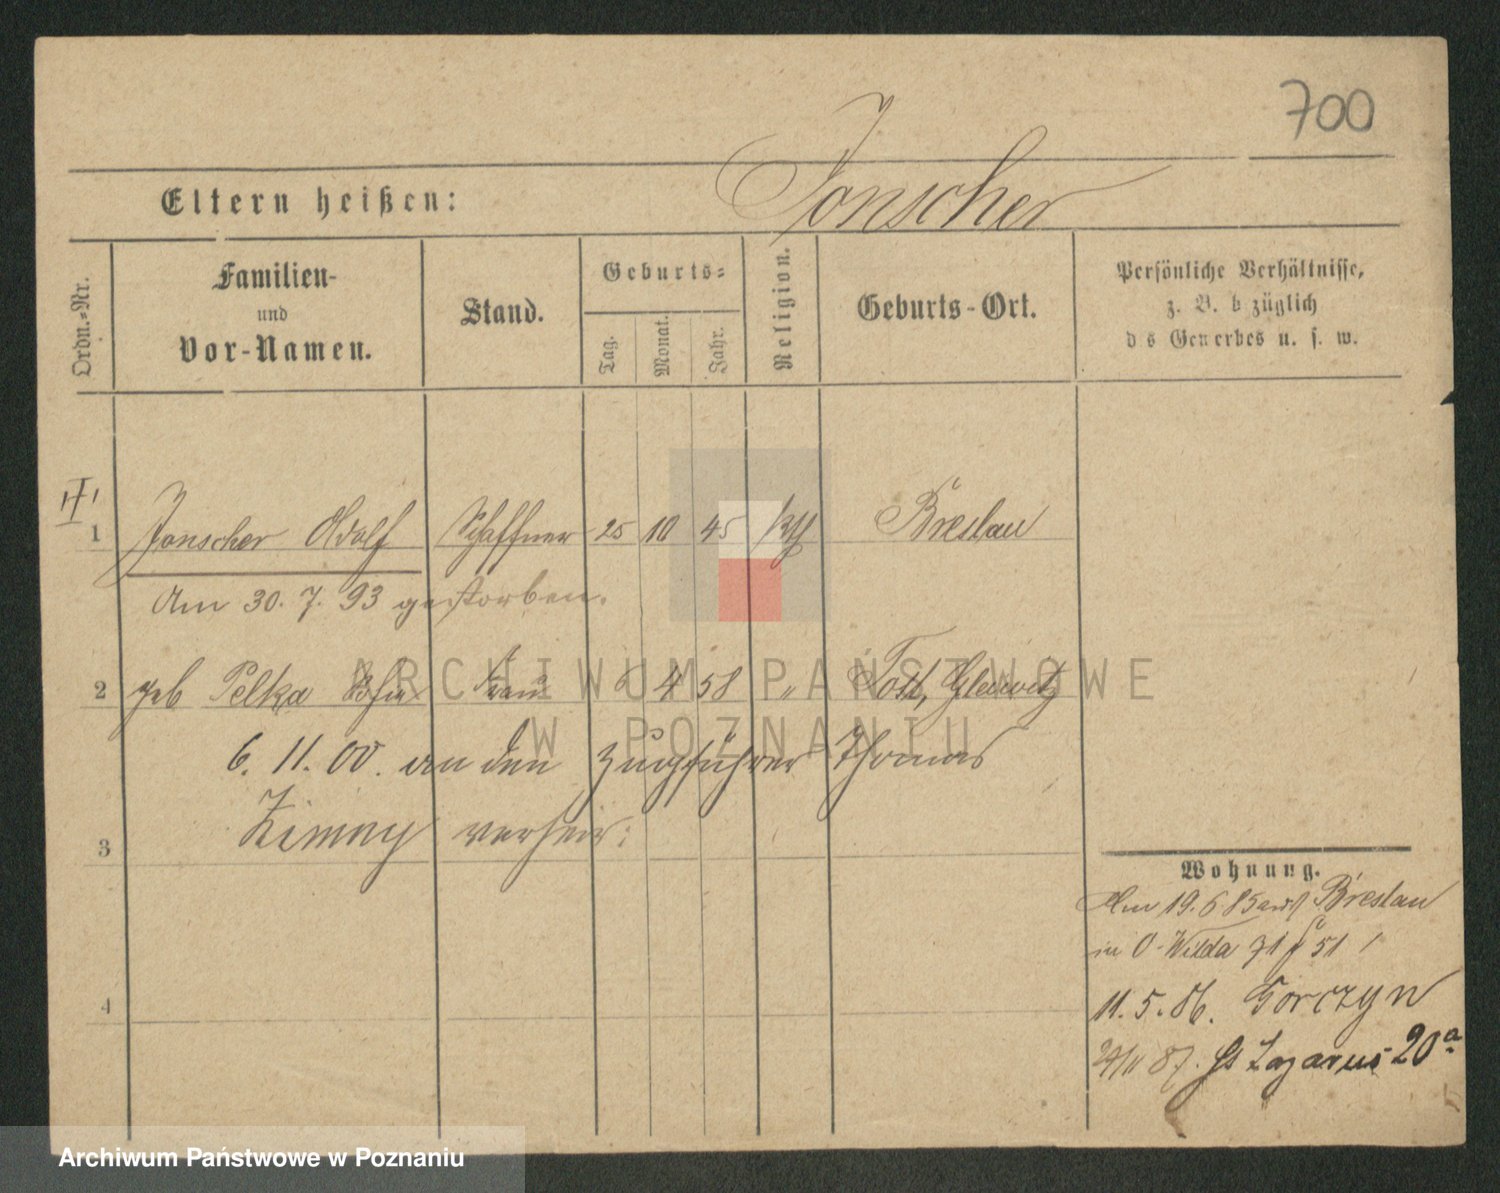 700
Jonscher
Eltern heißen:
Ordn.-Nr.
Familien-
und
Vor-Namen.
Stand.
Geburts-
Tag.
Monat.
Jahr.
Religion.
Geburts-Ort.
Persönliche Verhältnisse,
z. B. b züglich
d s Gewerbes u. s. w.
1 Jonscher Adolf Schaffner 25 10 45 kth Breslau
Am 30. 7. 93 gestorben.
2 geb Pelka Frau 4 58 " Tost, Gleiwitz
6. 11. 00. an den Zugführer Thomas
Zimny verheir:
3
4
Wohnung.
Am 19. 6 85 aus Breslau
in O-Wilda 71 51
11. 5. 86. Gorczyn
87. St Lazarus 20a
ARCHIWUM PAŃSTWOWE
W POZNANIU
Archiwum Państwowe w Poznaniu